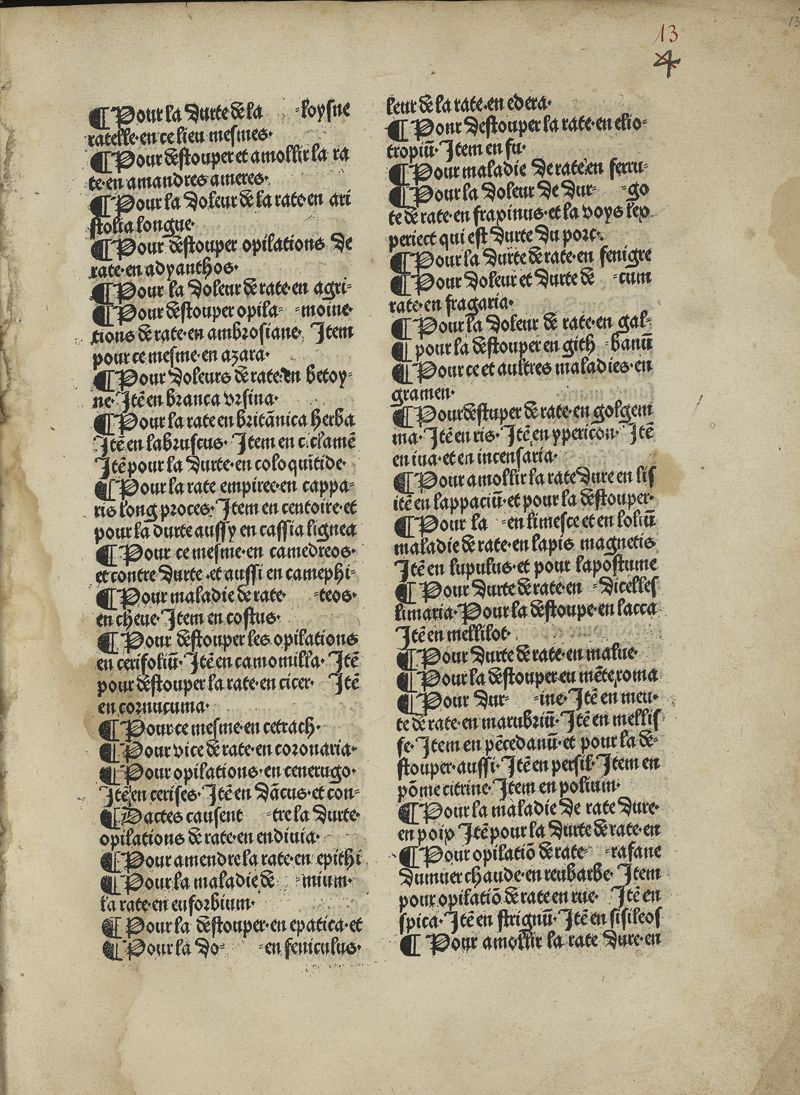 13
13
4
¶ Pour la durte de la -loysne
ratelle·en ce lieu mesmes·
¶ Pour destouper et amollir la ra
te·en amandres ameres·
¶ Pour la doleur de la rate·en ari
stolia longue·
¶ Pour destouper opilations de
rate·en adyanthos·
¶ Pour la doleur de rate·en agri-
¶ Pour destouper opila- -moine·
tions de rate·en ambrosiane· Item
pour ce mesme·en azara·
¶ Pour doleurs de rate·en betoy-
ne· Itē en branca vrsina·
¶ Pour la rate en britānica herba
Itē en labruscus· Item en ciclamē
Itē pour la durte·en coloquītide·
¶ Pour la rate empiree·en cappa-
ris long proces· Item en centoire·et
pour la durte aussy en cassia lignea
¶ Pour ce mesme·en camedreos·
et contre durte·et aussi en camephi-
¶ Pour maladie de rate -teos·
en cheue·Item en costus·
¶ Pour destouper les opilations
en cerifoliū· Itē en camomilla· Itē
pour destouper la rate·en cicer· Itē
en cornucuma·
¶ Pour ce mesme·en cetrach·
¶ Pour vice de rate·en coronaria·
¶ Pour opilations·en cenerugo·
Itē en cerises· Itē en dācus·et con-
¶ Dactes causent -tre la durte·
opilations de rate·en endiuia·
¶ Pour amendre la rate·en epithi
¶ Pour la maladie de -mium·
la rate·en euforbium·
¶ Pour la destouper·en epatica·et
¶ Pour la do- -en feniculus·
leur de la rate·en edera·
¶ Ponr destouper la rate·en elio-
tropiū· Item en fu·
¶ Pour maladie de rate en ferru-
¶ Pour la doleur de dur- -go
te de rate·en fraxinus·et la voys lex
periect qui est durte du porc·
¶ Pour la durte de rate·en fenigre
¶ Pour doleur et durte de -cum
rate·en fragaria·
¶ Pour la doleur de rate·en gal-
¶ pour la destouper en gith -banū
¶ Pour ce et aultres maladies·en
gramen·
¶ Pourdestuper de rate·en golgem
ma· Itē en ris· Itē en ypericon· Itē
en iua·et en incensaria·
¶ Pour amollir la rate dure en lis
itē en lappaciū·et pour la destouper·
¶ Pour la -en limesce et en loliū
maladie de rate·en lapis magnetis
Itē en lupulus·et pour lapostume
¶ Pour durte de rate·en -dicelles
limaria· Pour la destoupe·en lacca
Itē en mellilot·
¶ Pour durte de rate·en malue·
¶ Pour la destouper·eu mēte roma
¶ Pour dur- -ine· Itē en meu-
te de rate·en marubriū· Itē en mellis
se· Item en pēcedanū·et pour la de-
stouper·aussi· Itē en persil· Item en
pōme citrine· Item en polium·
¶ Pour la maladie de rate dure·
en poix Itē pour la durte de rate·en
¶ Pour opilatiō de rate- -rafane
dumuer chaude·en reubarbe· Item
pour opilatiō de rate en rue· Itē en
spica· Itē en strignū· Itē en sisileos
¶ Pour amollir la rate dure·en